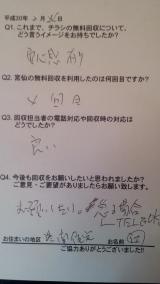 平成30年 2月 日
Q1. これまで、チラシの無料回収について、
どう言うイメージをお持ちでしたか?
安心感 有り
Q2. 富仙の無料回収を利用したのは何回目ですか?
回目
Q3. 回収担当者の電話対応や回収時の対応は
どうでしたか?
良い
Q4. 今後も回収をお願いしたいと思われましたか?
ご意見・ご要望がありましたらお願い致します。
お願いしたい。急な場合
TELします
お住まいの地区
お名前
ご協力ありがとうございました!!